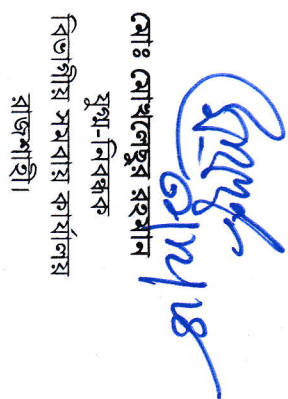 মোঃ মোখলেছুর রহমান
যুগ্ম-নিবন্ধক
বিভাগীয় সমবায় কার্যালয়
রাজশাহী।